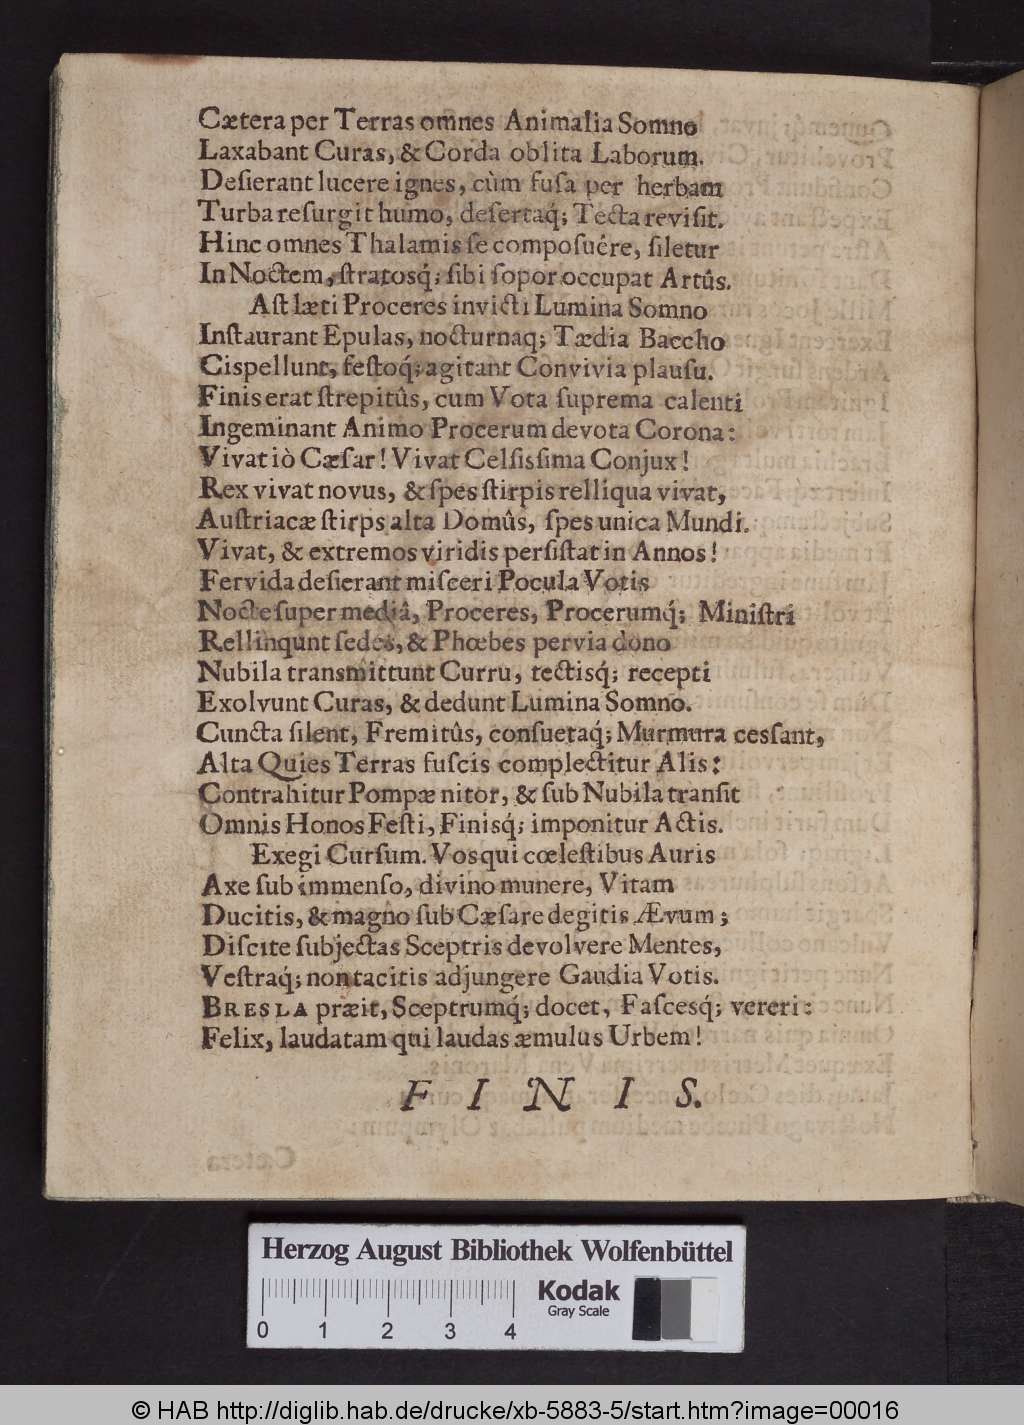 Cætera per Terras omnes Animalia Somno
Laxabant Curas, & Corda oblita Laborum.
Deſierant lucere ignes, cùm fuſa per herbam
Turba reſurgit humo, deſertaq́; Tecta reviſit.
Hinc omnes Thalamis ſe compoſuêre, ſiletur
In Noctem, ſtratosq́; ſibi ſopor occupat Artûs.
Aſt læti Proceres invicti Lumina Somno
Inſtaurant Epulas, nocturnaq; Tædia Baccho
Cispellunt, feſtoq́; agitant Convivia plauſu.
Finis erat ſtrepitûs, cum Vota ſuprema calenti
Ingeminant Animo Procerum devota Corona:
Vivat iò Cæſar! Vivat Celſisſima Conjux!
Rex vivat novus, & ſpes ſtirpis relliqua vivat,
Auſtriacæ ſtirps alta Domûs, ſpes unica Mundi.
Vivat, & extremos viridis perſiſtat in Annos!
Fervida deſierant miſceri Pocula Votis
Nocte ſuper mediâ, Proceres, Procerumq́; Miniſtri
Rellinqunt ſedes, & Phœbes pervia dono
Nubila transmittunt Curru, tectisq́; recepti
Exolvunt Curas, & dedunt Lumina Somno.
Cuncta ſilent, Fremitûs, conſuetaq́; Murmura cesſant,
Alta Quies Terras fuſcis complectitur Alis:
Contrahitur Pompæ nitor, & ſub Nubila tranſit
Omnis Honos Feſti, Finisq́; imponitur Actis.
Exegi Curſum. Vos qui cœleſtibus Auris
Axe ſub immenſo, divino munere, Vitam
Ducitis, & magno ſub Cæſare degitis Ævum;
Diſcite ſubjectas Sceptris devolvere Mentes,
Veſtraq́; non tacitis adjungere Gaudia Votis.
BRESLA præit, Sceptrumq́; docet, Faſcesq́; vereri:
Felix, laudatam qui laudas æmulus Urbem!
FINIS.
Herzog August Bibliothek Wolfenbüttel
Kodak
Gray Scale
0 1 2 3 4
© HAB http://diglib.hab.de/drucke/xb-5883-5/start.htm?image=00016